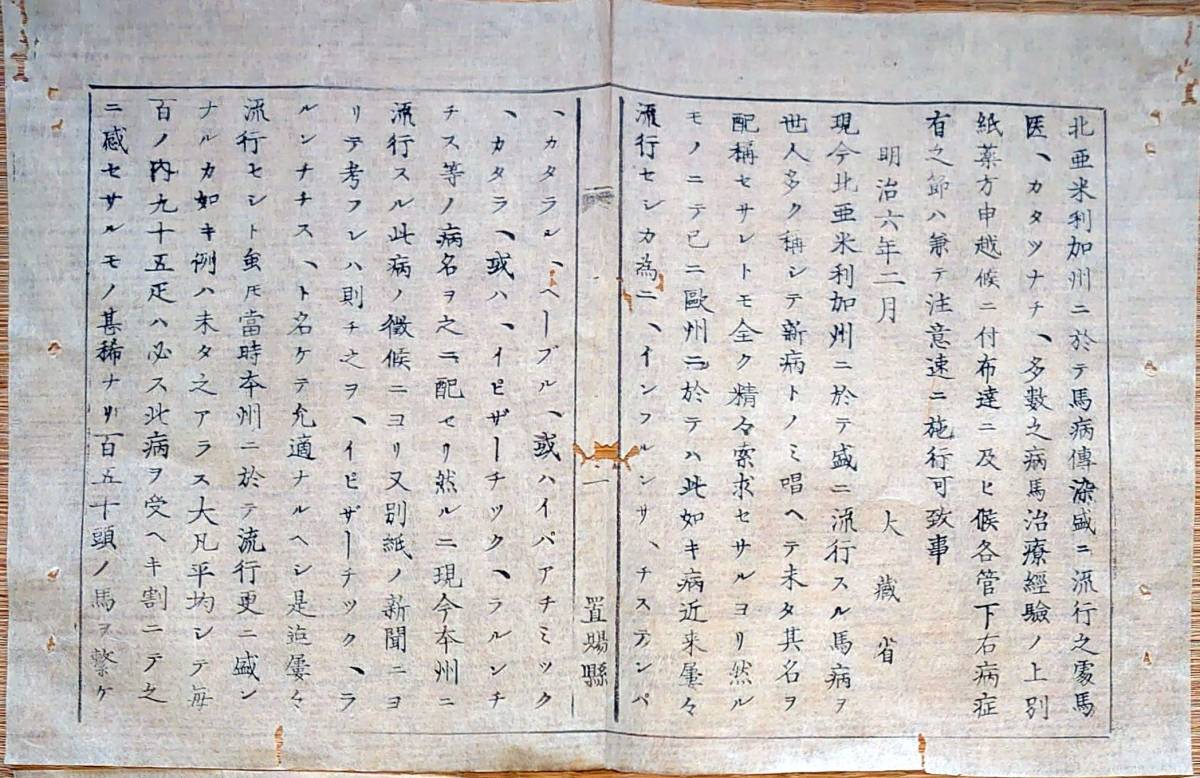 北亜米利加州ニ於テ馬病傳染盛ニ流行之處馬
医、カタツナチ、多數之病馬治療經驗ノ上別
紙薬方申越候ニ付布達ニ及ヒ候各管下右病症
有之節ハ兼テ注意速ニ施行可致事
明治六年二月　大藏省
現今北亜米利加州ニ於テ盛ニ流行スル馬病ヲ
世人多ク稱シテ新病トノミ唱ヘテ未タ其名ヲ
配稱セサレトモ全ク精々索求セサルヨリ然ル
モノニテ已ニ歐州ニ於テハ此如キ病近来屢々
流行セシカ為ニ、インフルンサ、チステンペ
一
置賜縣
、カタラル、ヘーブル、或ハイパアチミック
、カタラ、或ハ、イピザーチック、ラルンチ
チス等ノ病名ヲ之ニ配セリ然ルニ現今本州ニ
流行スル此病ノ徴候ニヨリ又別紙ノ新聞ニヨ
リテ考フレハ則チ之ヲ、イピザーチック、ラ
ルンチチス、ト名ケテ允適ナルヘシ是迠屢々
流行セシト虽𪜈當時本州ニ於テ流行更ニ盛ン
ナルカ如キ例ハ未タ之アラス大凡平均シテ毎
百ノ内九十五疋ハ必ス此病ヲ受ヘキ割ニテ之
ニ感セサルモノ甚稀ナリ百五十頭ノ馬ヲ繋ケ